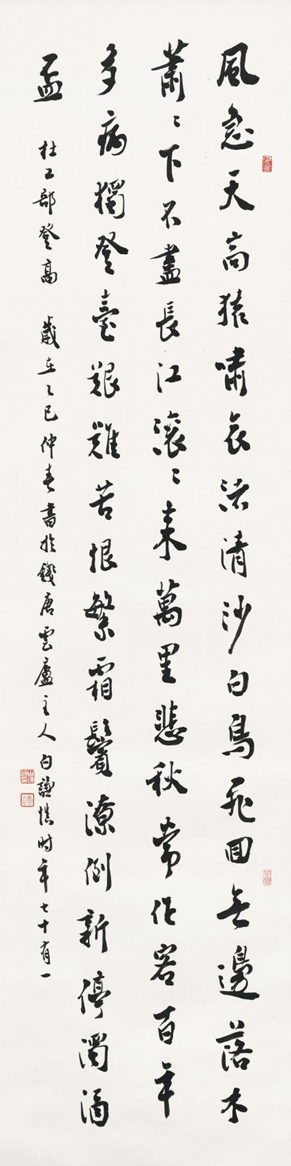 風急天高猿嘯哀渚清沙白鳥飛回無邊落木
蕭〻下不盡長江滾〻來萬里悲秋常作客百年
多病獨登臺艱難苦恨繁霜鬢潦倒新停濁酒
盃 杜工部登高 歲在乙巳仲春書於錢唐雲廬主人白謙慎時年七十有一